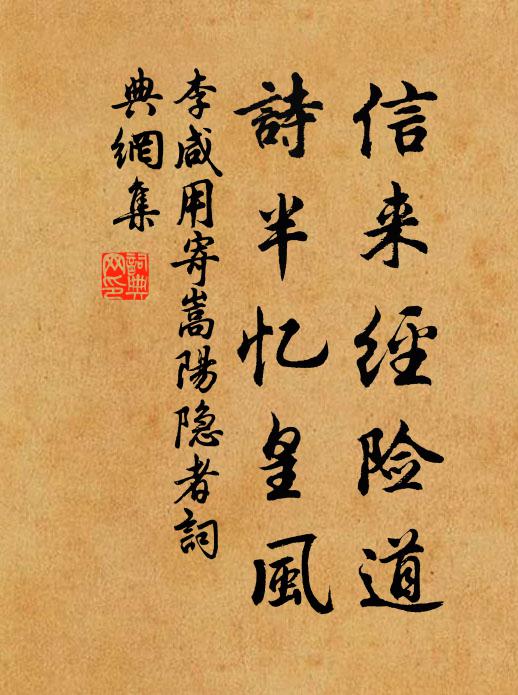 信来經险道
詩半忆皇風
李咸用寄嵩陽隐者詞
典網集
詞典网印